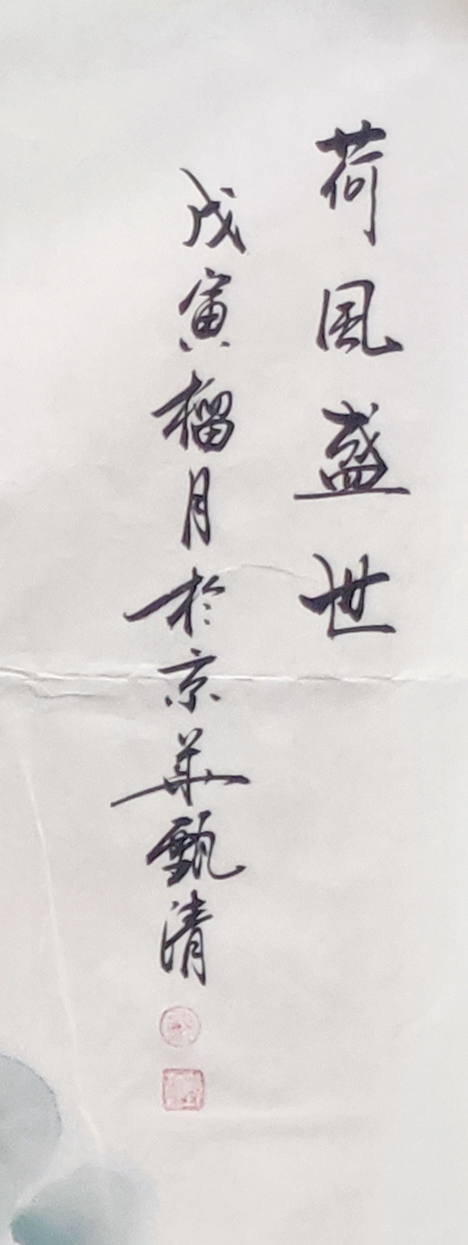 荷风盛世
戊寅榴月於京华甄清